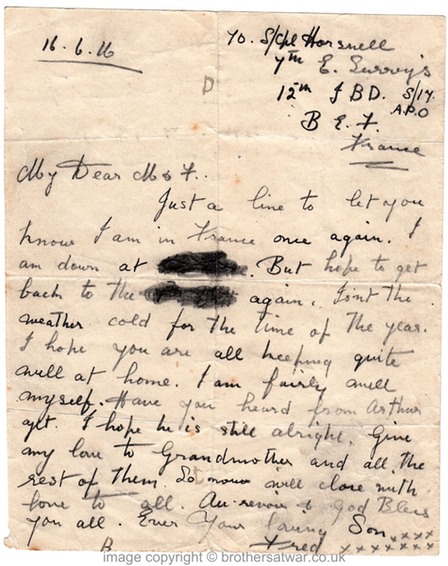 16.6.16
70. S/Cpl Horsnell
7th E. Surrey's
12th I B D. S/17.
A.P.O
B E F
France
D
My Dear M & F.
Just a line to let you
know I am in France once again. I
am down at . But hope to get
back to the again. Isnt the
weather cold for the time of the year.
I hope you are all keeping quite
well at home. I am fairly well
myself. Have you heard from Arthur
yet. I hope he is still alright. Give
my love to Grandmother and all the
rest of them. So now will close with
love to all. Au-revoir & God Bless
you all. Ever Your loving Son xxxx
Fred xxxxxxx
image copyright © brothersatwar.co.uk